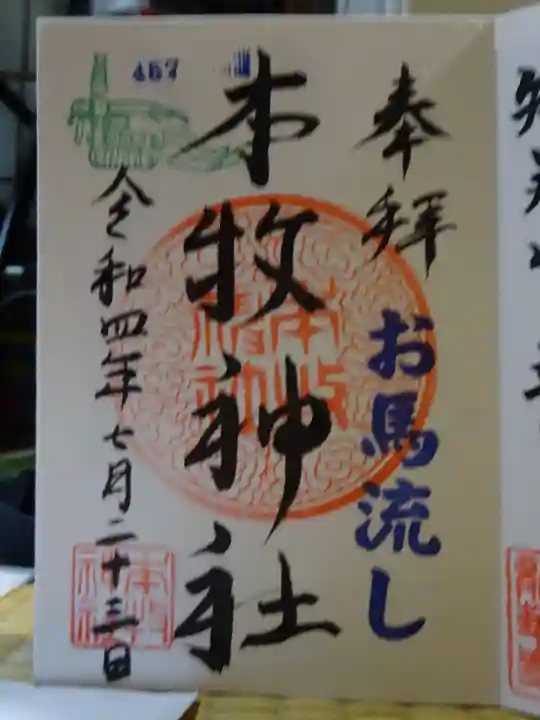 奉拝
お馬流し
本牧神社
457
令和四年七月二十三日
本牧
神社